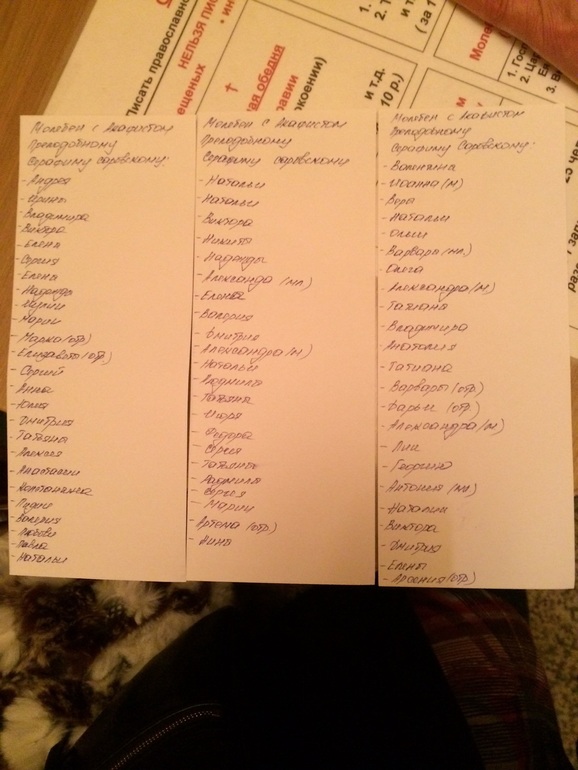 Писать православно
НЕЛЬЗЯ ПИС
ещеных
ная обедня
равии
окоении)
и т.д.
10 р.)
1.
2. Т
и т
( за 1
Моле
1. Гос
2. Ца
3. В
Молебен с Акафистом
Преподобному
Серафиму Саровскому:
- Андрея
- Ирины
- Владимира
- Виктора
- Елены
- Сергия
- Елены
- Надежды
- Марии
- Марка (отр)
- Елизаветы (отр)
- Сергий
- Анны
- Юлии
- Дмитрия
- Татьяны
- Алексея
- Анастасии
- Константина
- Лидии
- Валерия
- Любови
- Павла
- Натальи
Молебен с Акафистом
Преподобному
Серафиму Саровскому
- Натальи
- Натальи
- Виктора
- Никиты
- Надежды
- Александра (мл.)
- Елены
- Валерия
- Дмитрия
- Александра (м)
- Натальи
- Людмила
- Татьяна
- Игоря
- Федора
- Сергия
- Татьяны
- Людмила
- Сергия
- Марии
- Артема (отр)
- Нина
Молебен с Акафистом
Преподобному
Серафиму Саровскому:
- Валентина
- Иоанна (м)
- Веры
- Натальи
- Ольги
- Варвары (мл.)
- Олега
- Александра (м)
- Татиана
- Владимира
- Анатолия
- Татиана
- Варвары (отр)
- Дарьи (отр.)
- Александра (м)
- Лии
- Георгия
- Антония (мл)
- Наталия
- Виктора
- Дмитрия
- Елены
- Арсения (отр)